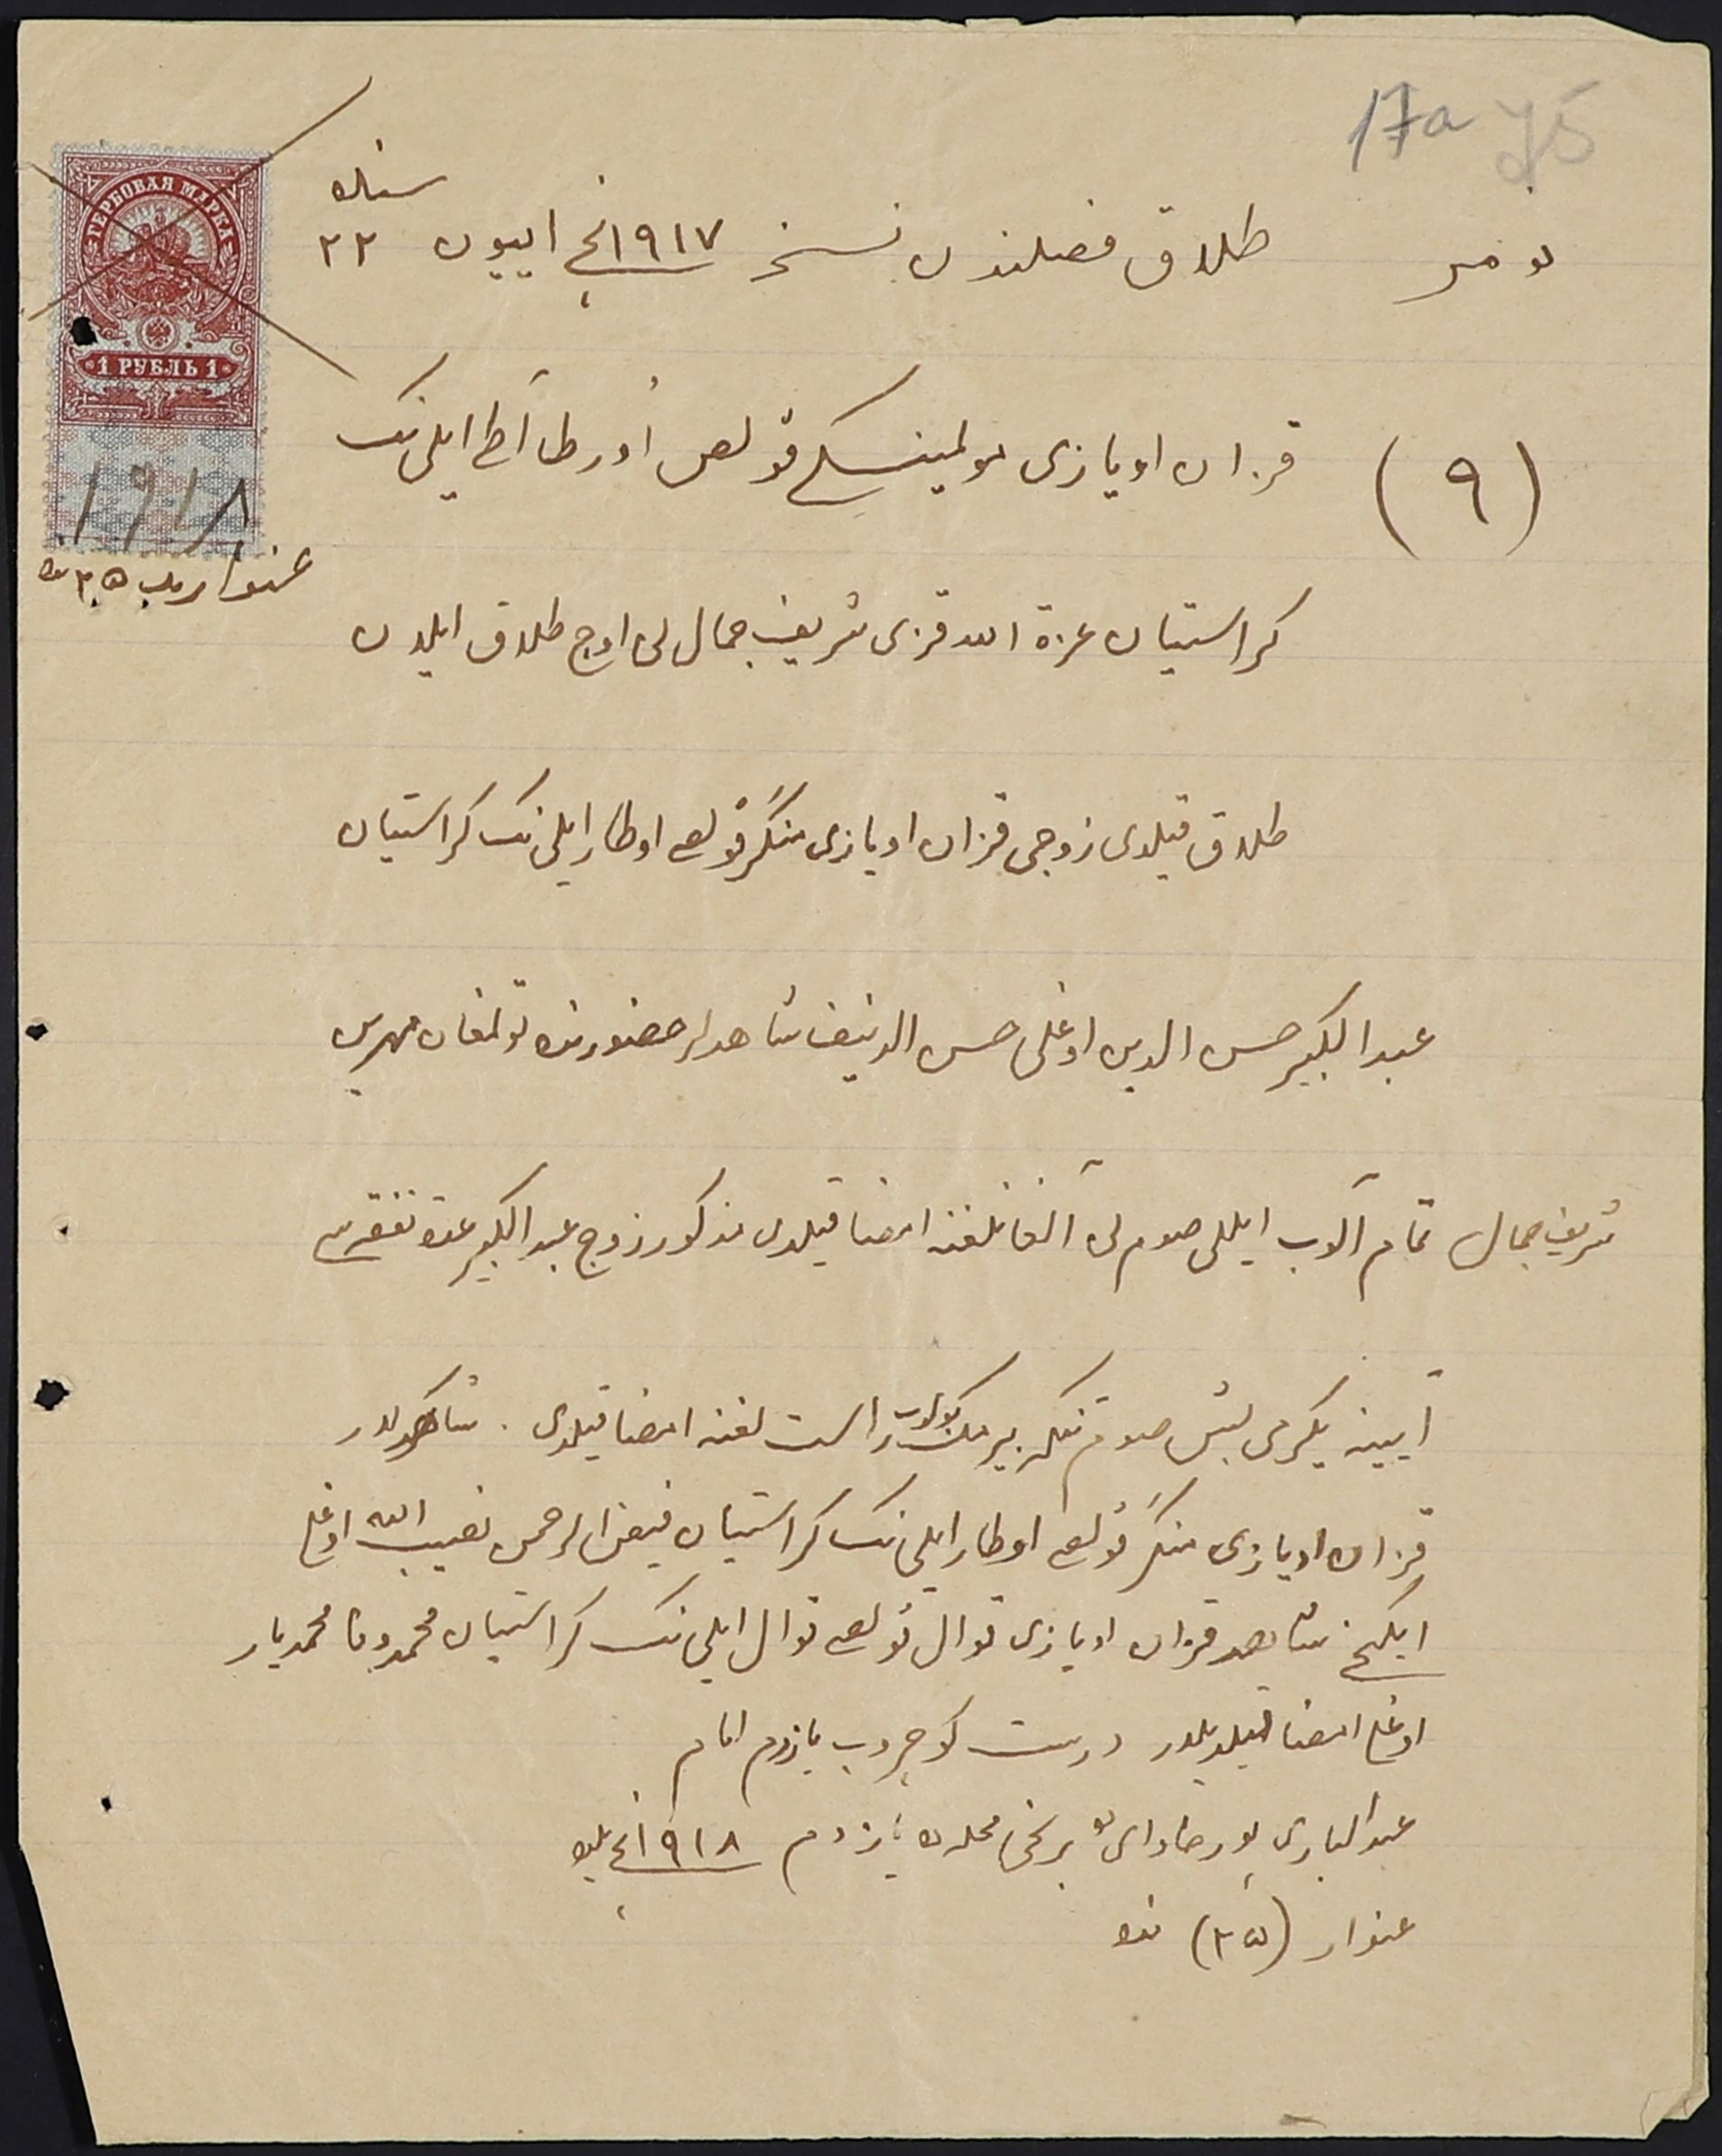 17a 75
ГЕРБОВАЯ МАРКА
1 РУБЛЬ 1
1918
غنوار ٢٥ نده
نومر طلاق فصلندن نسخه ١٩١٧نجی اییون ٢٢ سنده
(٩) قزان اویازی قولص اورطا آطا ایلی نک
کراستیان عزة الله قزی شریف جمال نی اوچ طلاق ایلدن
طلاق قیلدی زوجی قزان اویازی منگر ۋولصی اوطار ایلی نک کراستیان
عبد الکبیر حسن الدین اوغلی حسن الدینف شاهدلر حضورنده تولنغان مهرین
شریف جمال تمام آلوب ایللی صوم نی آلغانلغنه امضا قیلدی مذکور زوج عبد الکبیر عدة نفقه سی
آیینه یکرمی بیش صوم تنکه بیرمک بولوب راست لغنه امضا قیلدی . شاهدلر
قزان اویازی منگر ۋولصی اوطار ایلی نک کراستیان فیض الرحمن نصیب الله اوغلی
ایکنجی شاهد قزان اویازی قوال ۋولصی قوال ایلی نک کراستیان محمدوفا محمدیار
اوغلی امضا قیلدیلر درست کوچروب یازدم امام
عبد الباری برنجی محله ده یازدم ١٩١٨نجی یلده
غنوار (٢٥) نده